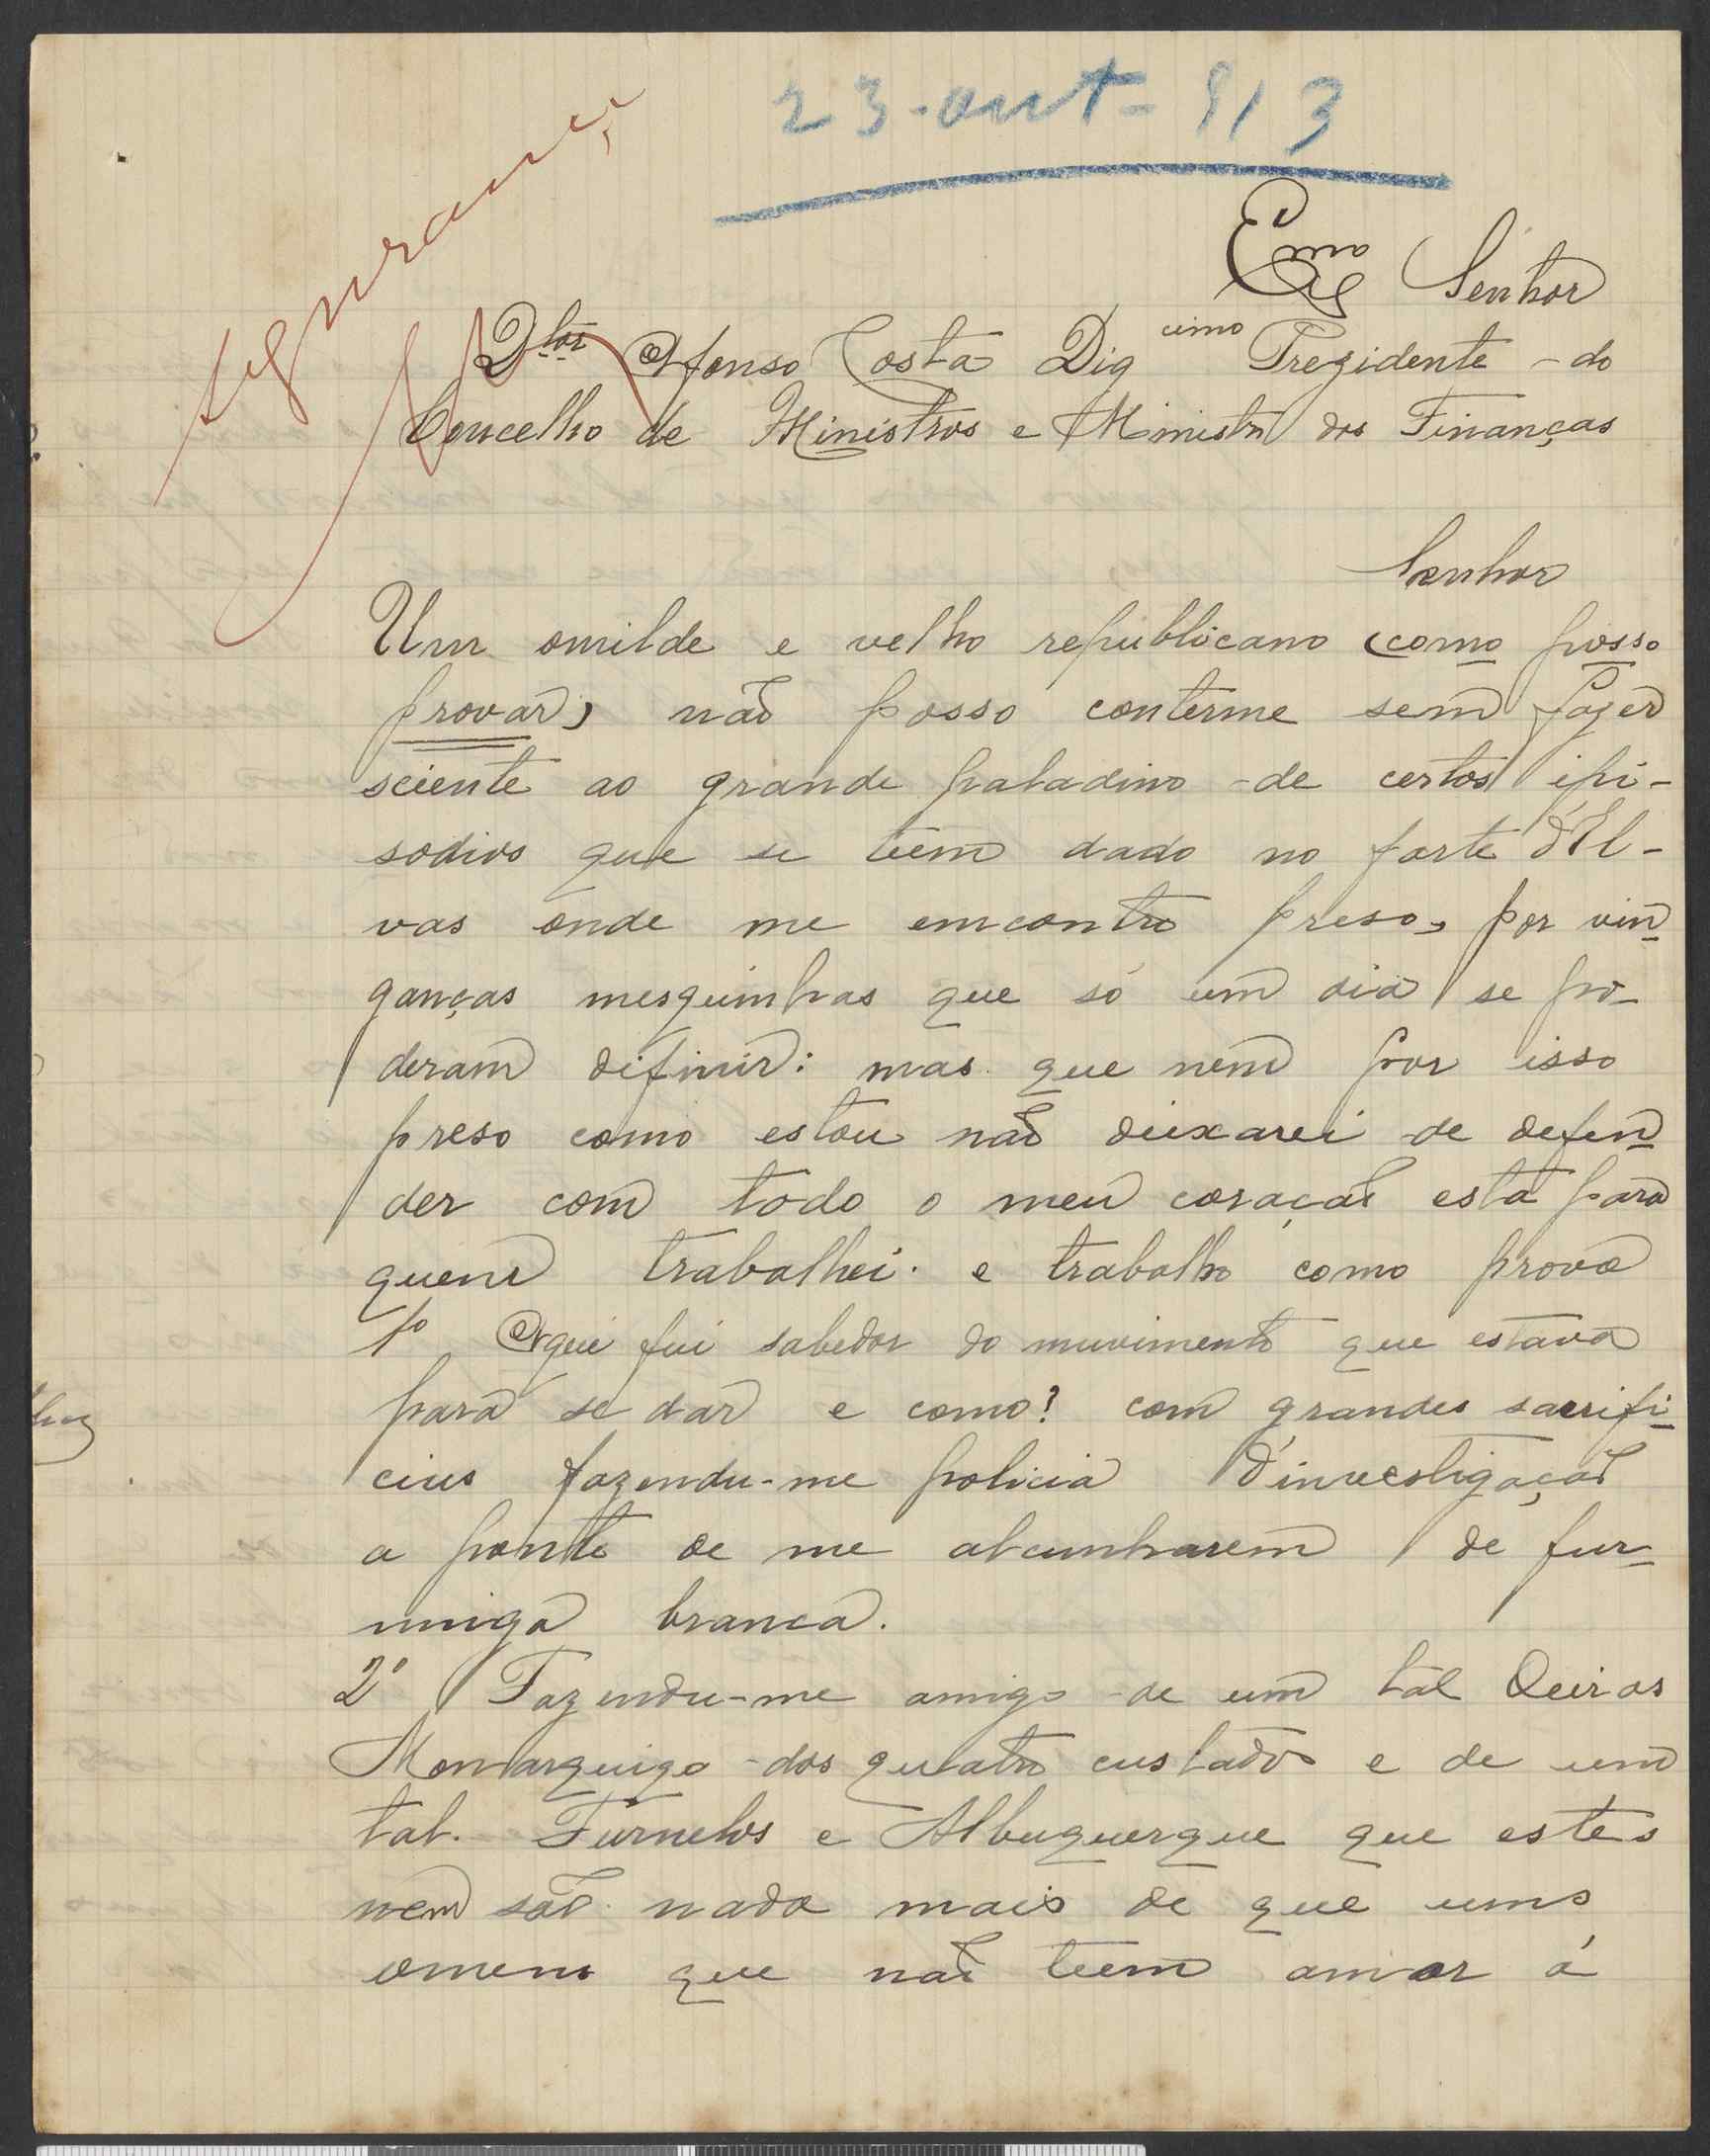 23-out-913
segurança
Exmo Senhor
Dtor Afonso Costa Dig cimo Prezidente do
Concelho de Ministros e Ministro das Finanças
Senhor
Um omilde e velho republicano (como posso
provar), não posso conterme sem fazer
sciente ao grande paladino de certos ipi-
sodios que se teem dado no forte d'El-
vas onde me emcontro preso, por vin-
ganças mesquinhas que só um dia se po-
deram difinir: mas que nem por isso
preso como estou não deixarei de defen-
der com todo o meu coração esta para
quem trabalhei e trabalho como prova
1º Aqui fui sabedor do muvimento que estava
para se dar e como? com grandes sacrifi-
cius fazendu-me policia d'investigação
a ponto de me alcunharem de fur-
miga branca.
2º Fazendu-me amigo de um tal Queiros
Monarquigo dos quatro custados e de um
tal. Furnelos e Albuquerque que estes
nem são nada mais de que uns
omens que não teem amor á